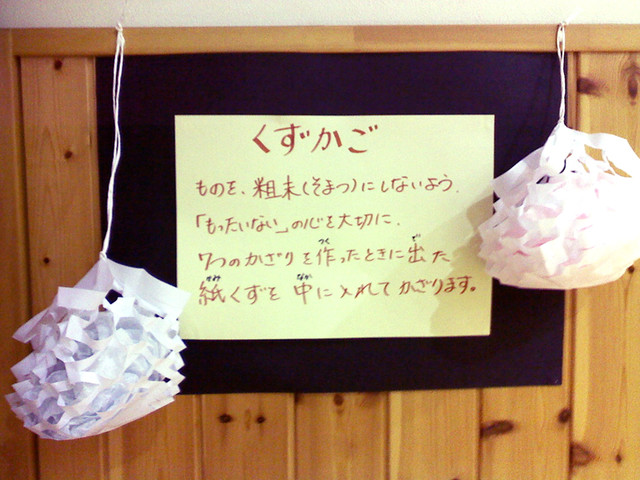 くずかご
ものを、粗末(そまつ)にしないよう。
「もったいない」の心を大切に、
7つのかざりを作ったときに出た
紙くずを中に入れてかざります。